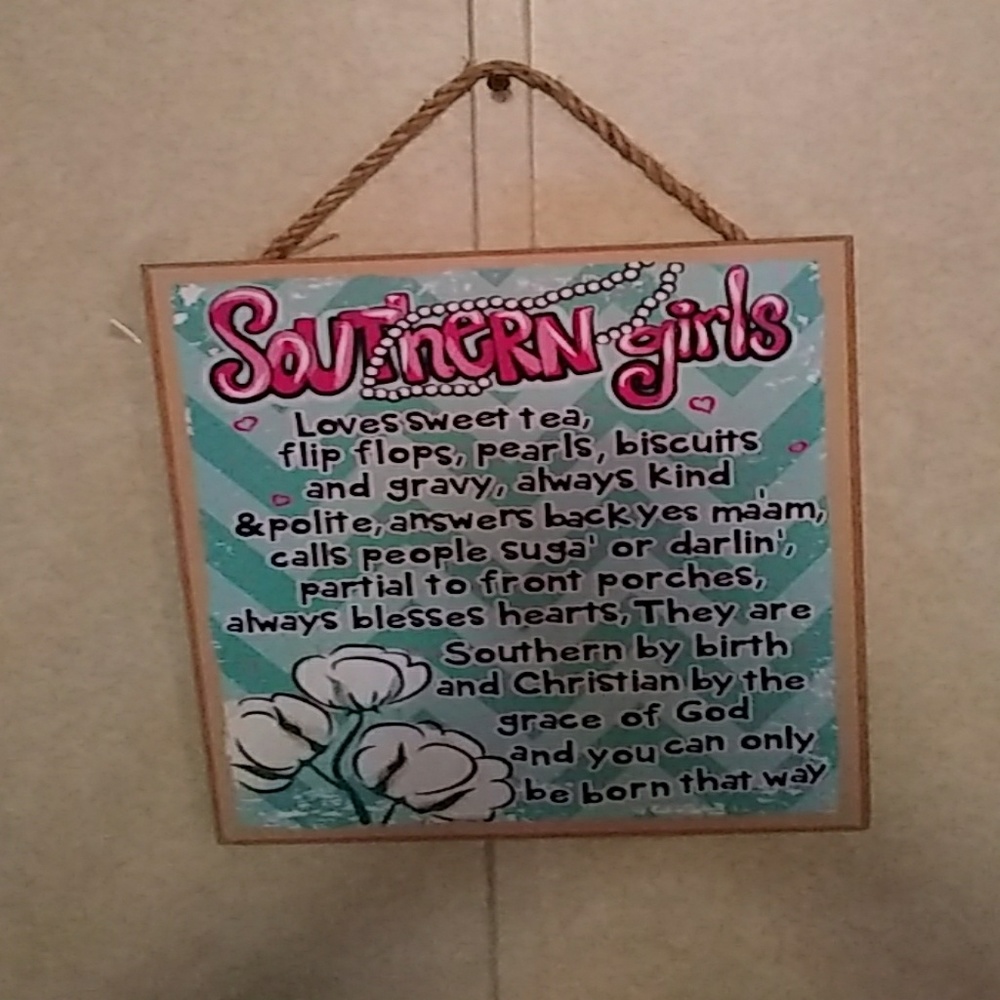 SOUThERN girls
Loves sweet tea,
flip flops, pearls, biscuits
and gravy, always kind
& polite, answers back yes ma'am,
calls people suga' or darlin',
partial to front porches,
always blesses hearts, They are
Southern by birth
and Christian by the
grace of God
and you can only
be born that way